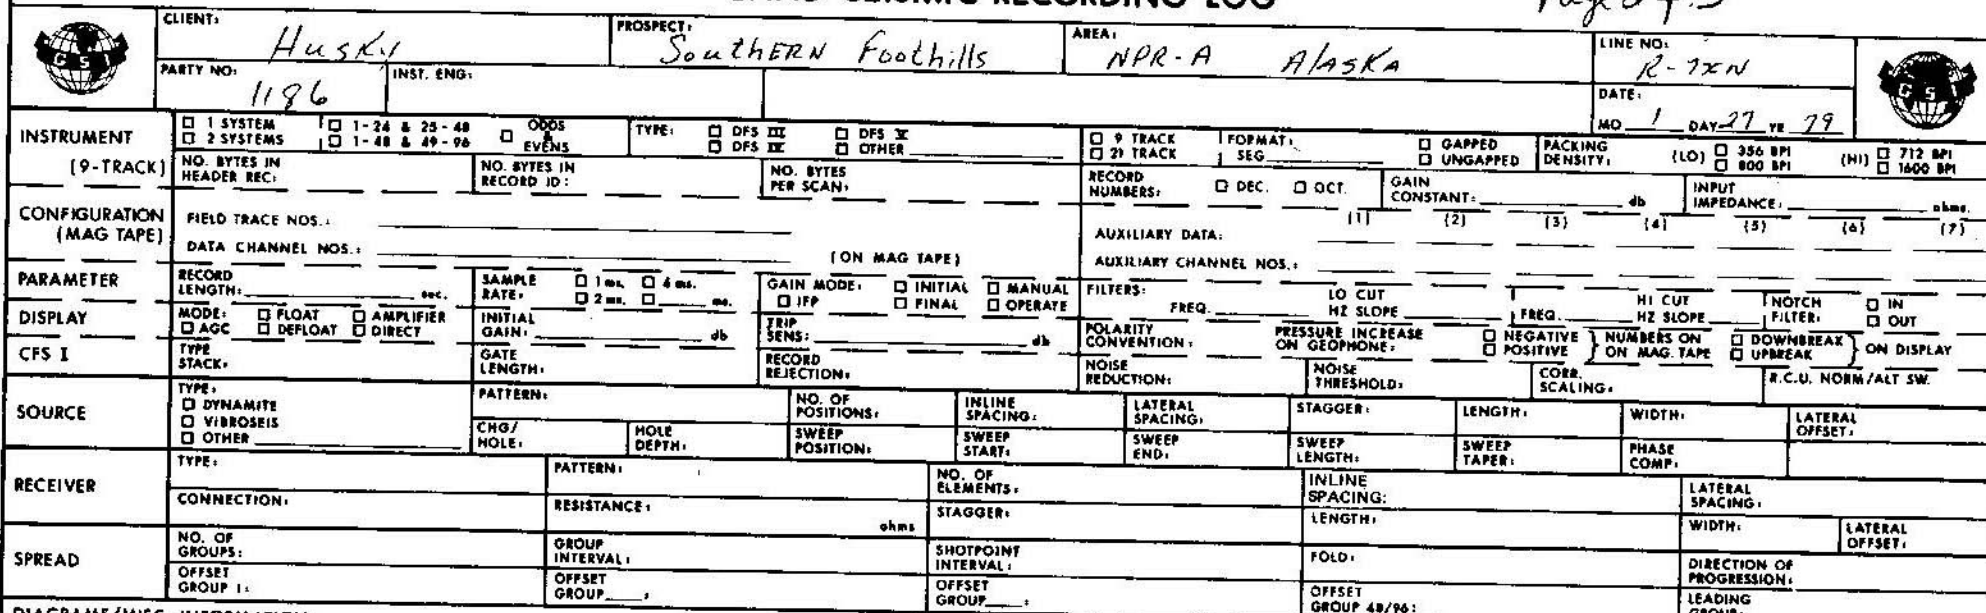 SEISMIC RECORDING LOG
Page of 5
CLIENT: Husky PROSPECT: Southern Foothills AREA: NPR-A Alaska LINE NO: R-7XN
GSI GSI
PARTY NO: 1186 INST. ENG: DATE: MO 1 DAY 27 YR 79
INSTRUMENT (9-TRACK)
□ 1 SYSTEM □ 1-24 & 25-48 □ ODDS & EVENS TYPE: □ DFS III □ DFS V □ 9 TRACK FORMAT: □ GAPPED PACKING DENSITY: (LO) □ 356 BPI (HI) □ 712 BPI
□ 2 SYSTEMS □ 1-48 & 49-96 □ DFS IV □ OTHER □ 21 TRACK SEG □ UNGAPPED □ 800 BPI □ 1600 BPI
NO. BYTES IN HEADER REC: NO. BYTES IN RECORD ID: NO. BYTES PER SCAN: RECORD NUMBERS: □ DEC. □ OCT. GAIN CONSTANT: db INPUT IMPEDANCE: ohms.
CONFIGURATION (MAG TAPE)
FIELD TRACE NOS.: AUXILIARY DATA: (1) (2) (3) (4) (5) (6) (7)
DATA CHANNEL NOS.: (ON MAG TAPE) AUXILIARY CHANNEL NOS.:
PARAMETER RECORD LENGTH: sec. SAMPLE RATE: □ 1 ms. □ 4 ms. □ 2 ms. □ ms. GAIN MODE: □ INITIAL □ MANUAL □ IFP □ FINAL □ OPERATE FILTERS: FREQ. LO CUT HZ SLOPE FREQ. HI CUT HZ SLOPE NOTCH FILTER: □ IN □ OUT
DISPLAY MODE: □ FLOAT □ AMPLIFIER □ AGC □ DEFLOAT □ DIRECT INITIAL GAIN: db TRIP SENS: db POLARITY CONVENTION: PRESSURE INCREASE ON GEOPHONE: □ NEGATIVE □ POSITIVE } NUMBERS ON ON MAG. TAPE □ DOWNBREAK □ UPBREAK } ON DISPLAY
CFS I TYPE STACK: GATE LENGTH: RECORD REJECTION: NOISE REDUCTION: NOISE THRESHOLD: CORR. SCALING: R.C.U. NORM/ALT SW.
SOURCE TYPE: □ DYNAMITE □ VIBROSEIS □ OTHER
PATTERN: NO. OF POSITIONS: INLINE SPACING: LATERAL SPACING: STAGGER: LENGTH: WIDTH: LATERAL OFFSET:
CHG/HOLE: HOLE DEPTH: SWEEP POSITION: SWEEP START: SWEEP END: SWEEP LENGTH: SWEEP TAPER: PHASE COMP:
RECEIVER TYPE: PATTERN: NO. OF ELEMENTS: INLINE SPACING: LATERAL SPACING:
CONNECTION: RESISTANCE: ohms STAGGER: LENGTH: WIDTH: LATERAL OFFSET:
SPREAD NO. OF GROUPS: GROUP INTERVAL: SHOTPOINT INTERVAL: FOLD: DIRECTION OF PROGRESSION:
OFFSET GROUP 1: OFFSET GROUP : OFFSET GROUP : OFFSET GROUP 48/96: LEADING GROUP:
DIAGRAMS/MISC. INFORMATION